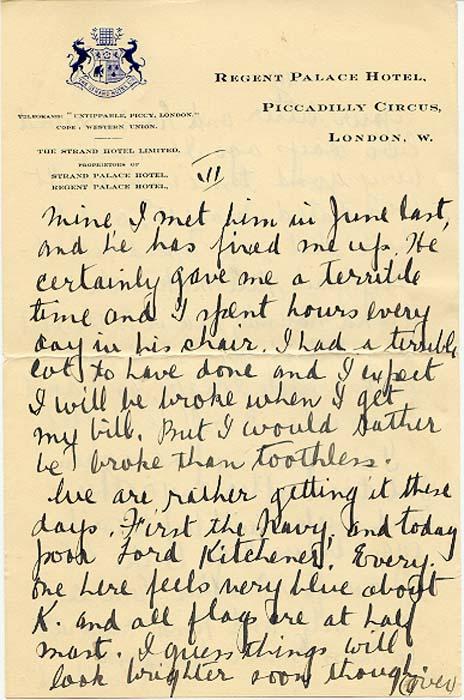 REGENT PALACE HOTEL,
PICCADILLY CIRCUS,
LONDON, W.
TELEGRAMS: "UNTIPPABLE, PICCY, LONDON."
CODE: WESTERN UNION.
THE STRAND HOTEL LIMITED,
PROPRIETORS OF
STRAND PALACE HOTEL.
REGENT PALACE HOTEL,
III
mine, I met him in June last,
and he has fixed me up. He
certainly gave me a terrible
time and I spent hours every
day in his chair. I had a terrible
lot to have done and I expect
I will be broke when I get
my bill. But I would rather
be broke than toothless.
We are rather getting it these
days. First the Navy, and today
poor Lord Kitchener. Every-
one here feels very blue about
K. and all flags are at half
mast. I guess things will
look brighter soon though.
(over)